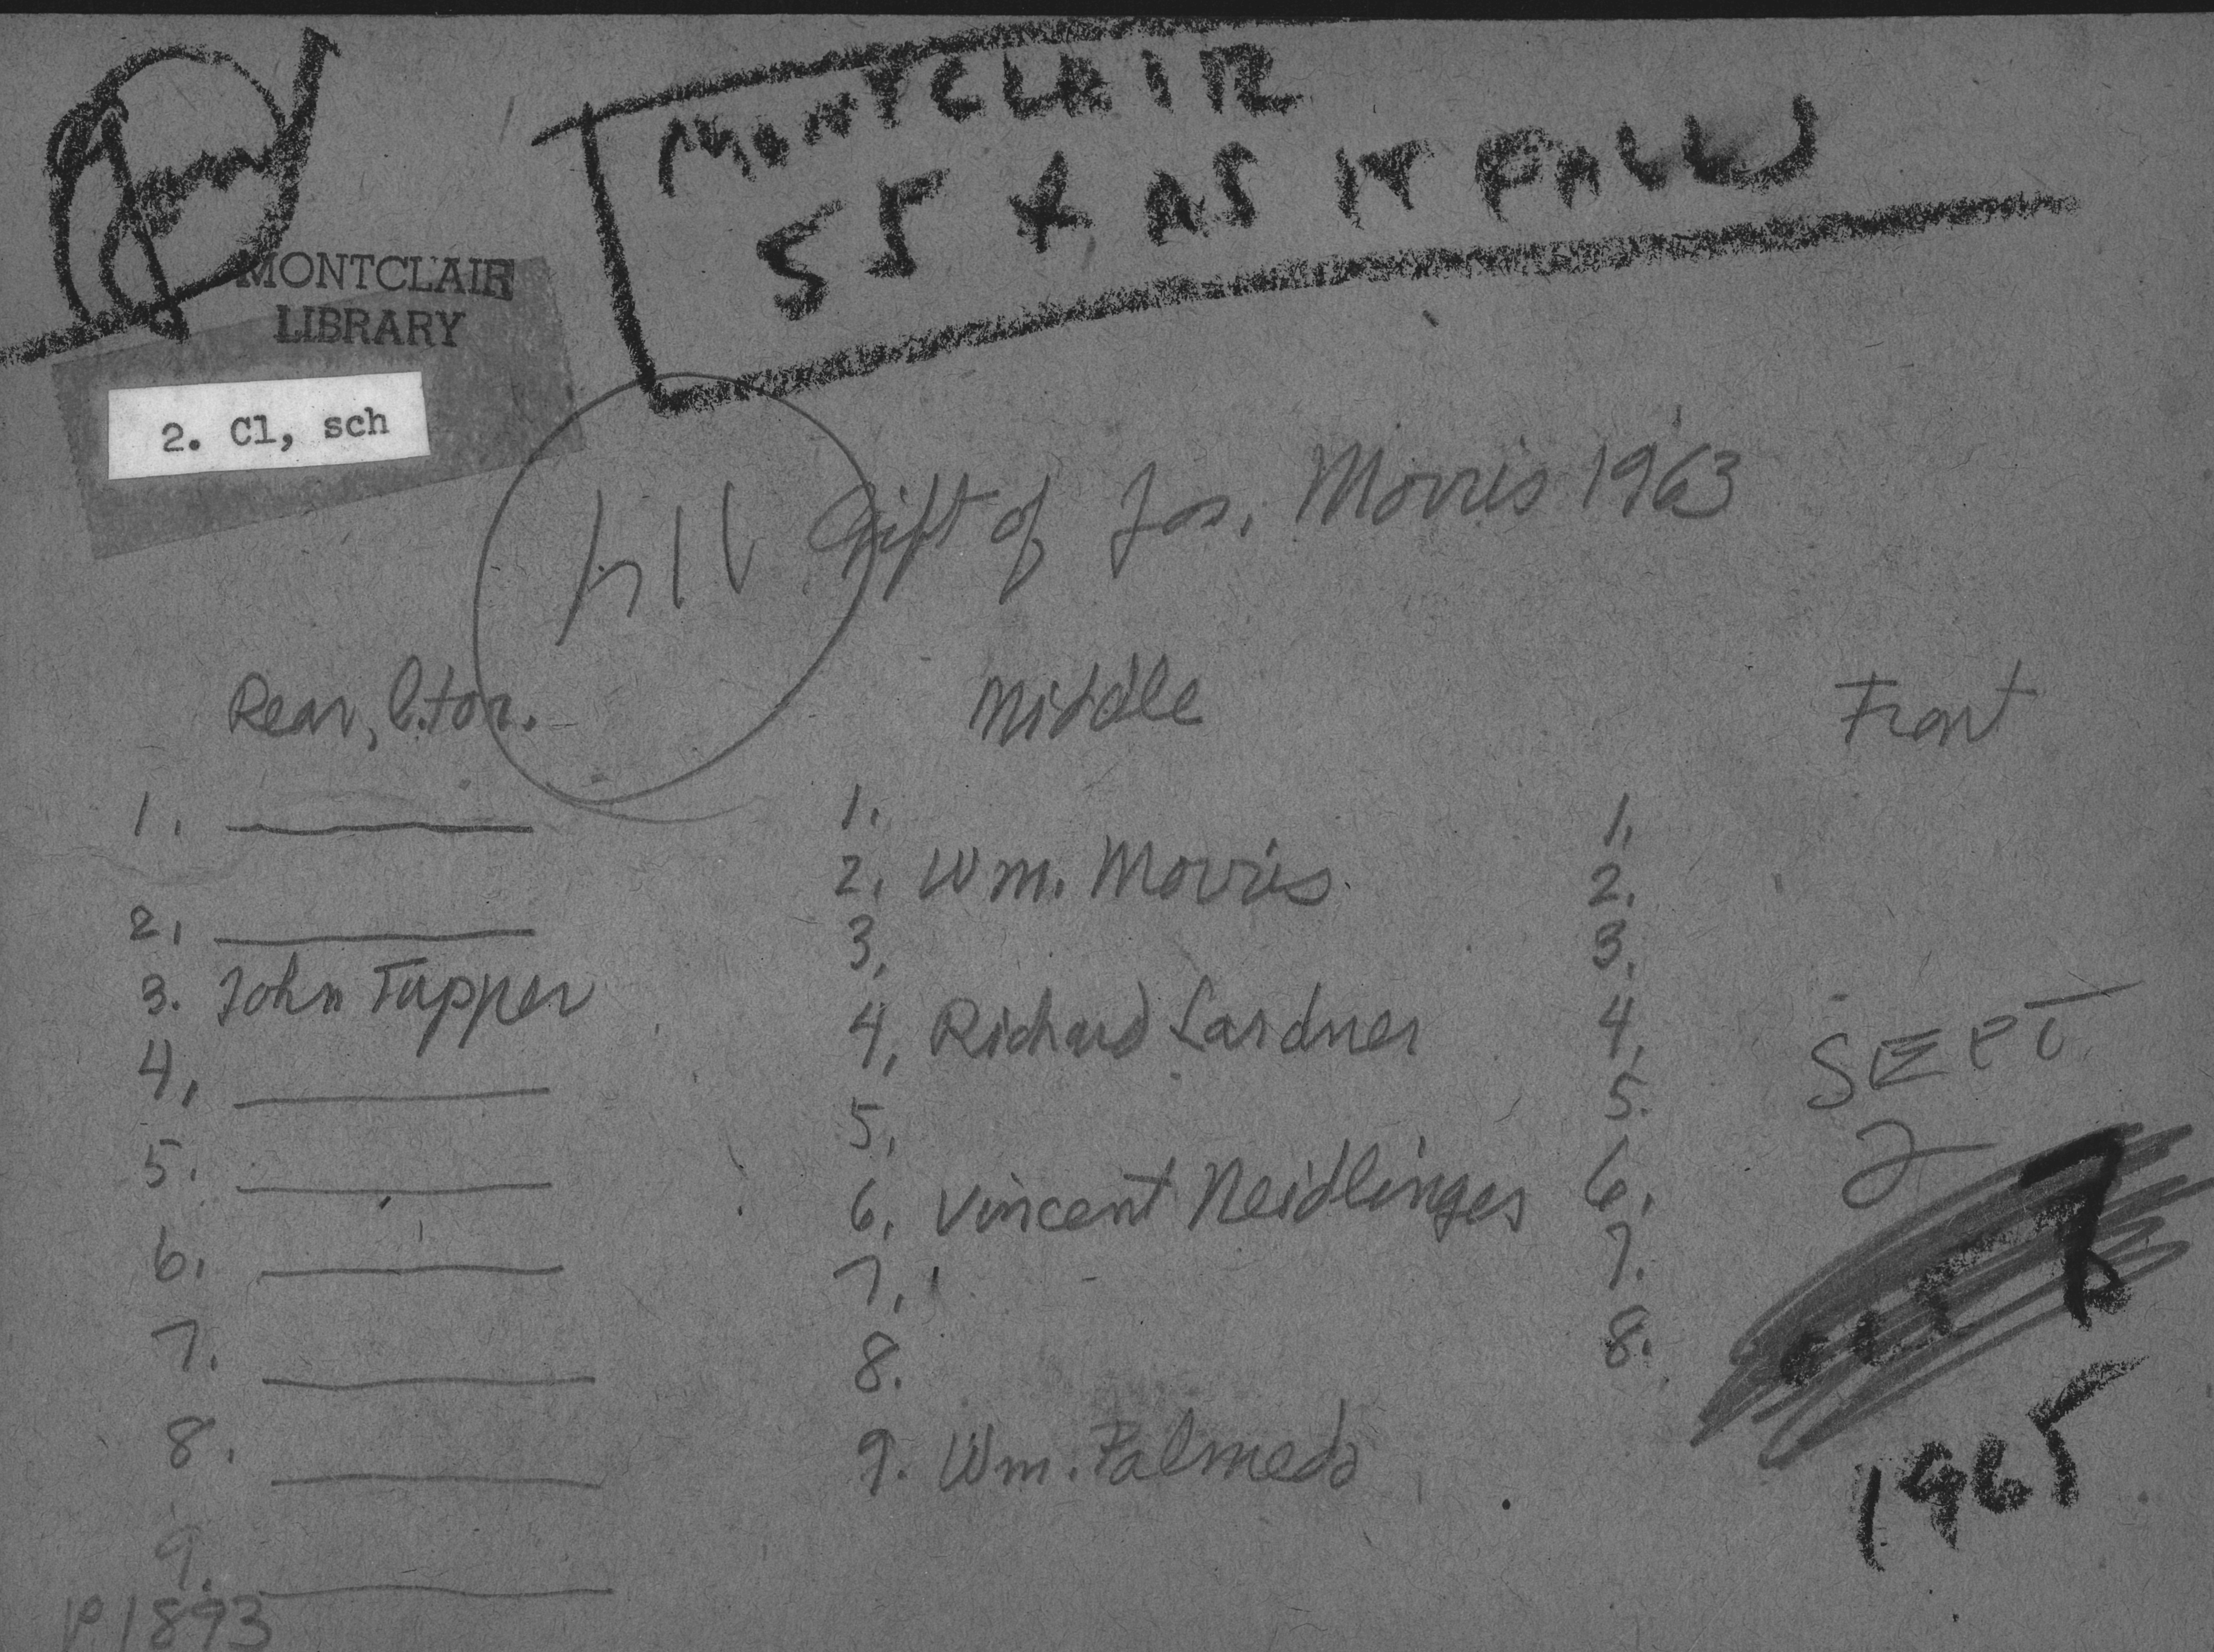 MONTCLAIR
55 x AS IT FALLS
MONTCLAIR
LIBRARY
2. Cl, sch
Gift of Jos. Morris 1963
Rear, l. to r.
1.
2.
3. John Tupper
4.
5.
6.
7.
8.
9.
Middle
1.
2. Wm. Morris
3.
4. Richard Lardner
5.
6. Vincent Neidlinger
7.
8.
9. Wm. Palmedo
Front
1.
2.
3.
4.
5.
6.
7.
8.
SEPT
2
7
1965
P1893